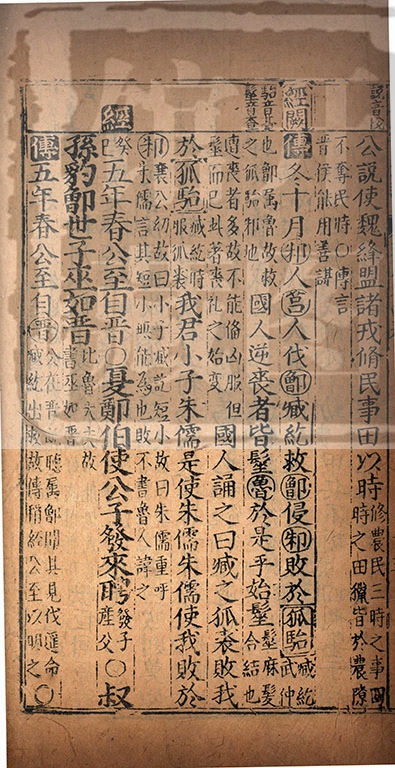 公說使魏絳盟諸戎脩民事田以時修農民三時之事因時之田獵皆於農隙
不奪民時〇傳言晉侯能用善謀
經闕
傳冬十月邾人莒人伐鄫臧紇救鄫侵邾敗於狐駘臧紇武仲
也鄫屬魯故救之狐駘邾地國人逆喪者皆髽魯於是乎始髽髽麻髮合結也
遭喪者多故不能備凶服但髽而已此著喪禮之始變國人誦之曰臧之狐裘敗我
於狐駘臧紇時服狐裘我君小子朱儒是使朱儒朱儒使我敗於
邾襄公幼故曰小子臧紇短小故曰朱儒重呼朱儒言其短小無能為也敗不書魯人諱之
經
癸巳五年春公至自晉〇夏鄭伯使公子發來聘發子產父〇叔
孫豹鄫世子巫如晉比魯大夫故書巫如晉
傳五年春公至自晉公在晉既聽屬鄫聞其見伐遙命臧紇出救故傳稱經公至以明之〇